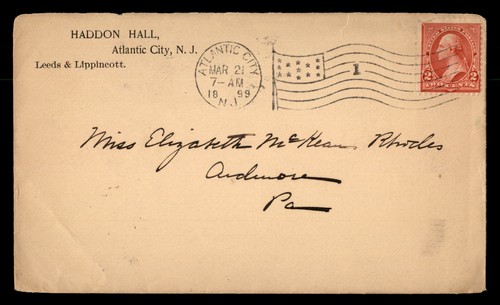 HADDON HALL,
Atlantic City, N. J.
Leeds & Lippincott.
ATLANTIC CITY
MAR 21
7-AM
18 99
N.J.
1
2 2
TWO CENTS
Miss Elizabeth McKean Rhodes
Ardmore
Pa